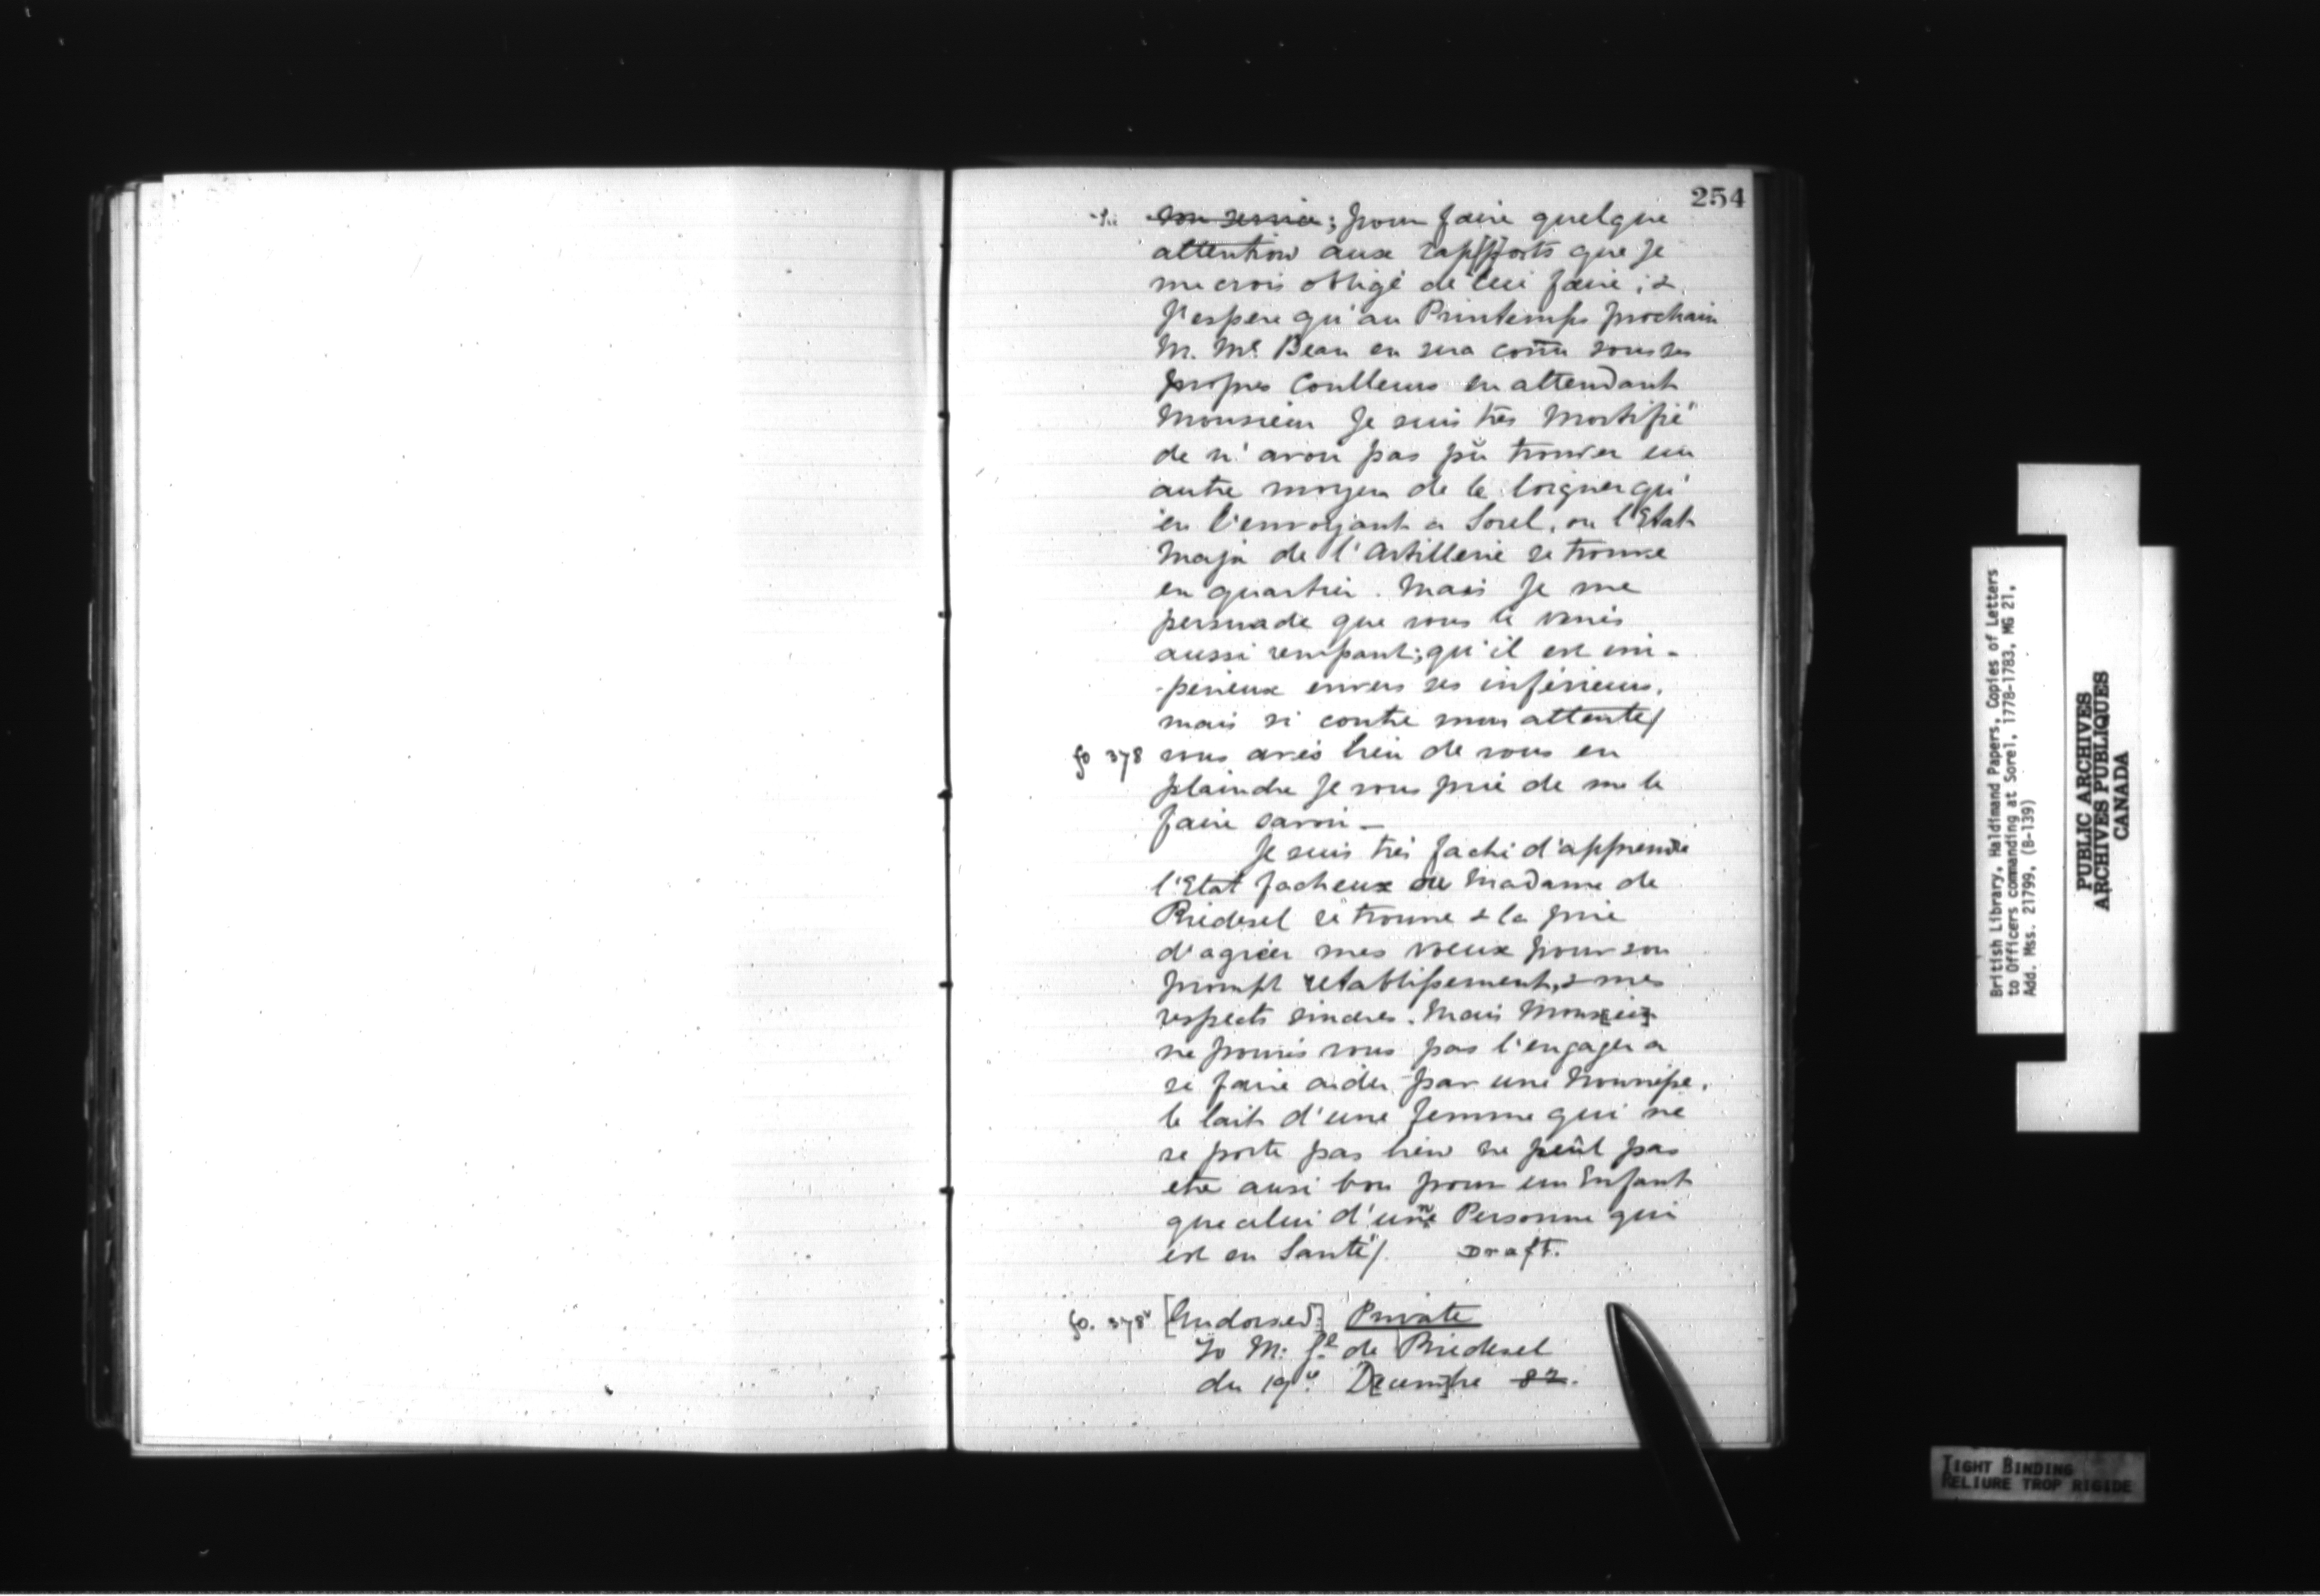 254
~~son service~~; pour faire quelque
attention aux rap[p]orts que Je
me crois obligé de lui faire; &
J'espere qu'au Printemps prochain
M. Mc Bean en sera con̄u sous ses
propres Coulleurs en attendant
Monsieur Je suis très Mortifié
de n'avoir pas pû trouver un
autre moyen de le loigner qu'
en l'envoyant a Sorel, ou l'Etat
Major de l'Artillerie se trouve
en quartier. Mais Je me
persuade que vous le verrés
aussi rempant; qu'il est im-
-perieux envers ses inférieurs.
mais si contre mon attente/
fo 378 vous avés lieu de vous en
plaindre Je vous prie de me le
faire savoir —
Je suis très faché d'apprendre
l'Etat facheux ou Madame de
Riedesel se trouve & la prie
d'agréer mes voeux pour son
prompt retablissement, & mes
respects sinceres. Mais Mons[ieur]
ne pourrés vous pas l'engager a
se faire aider par une Nourrisse.
le lait d'une femme qui ne
se porte pas bien ne peût pas
etre ausi bon pour un Enfant
que celui d'une Personne qui
est en Santé/. Draft.
fo. 378v [Endorsed] Private
To M: Gl de Riedesel
du 19e Decembre 82.
British Library, Haldimand Papers, Copies of Letters
to Officers commanding at Sorel, 1778-1783, MG 21,
Add. Mss. 21799, (B-139)
PUBLIC ARCHIVES
ARCHIVES PUBLIQUES
CANADA
TIGHT BINDING
RELIURE TROP RIGIDE